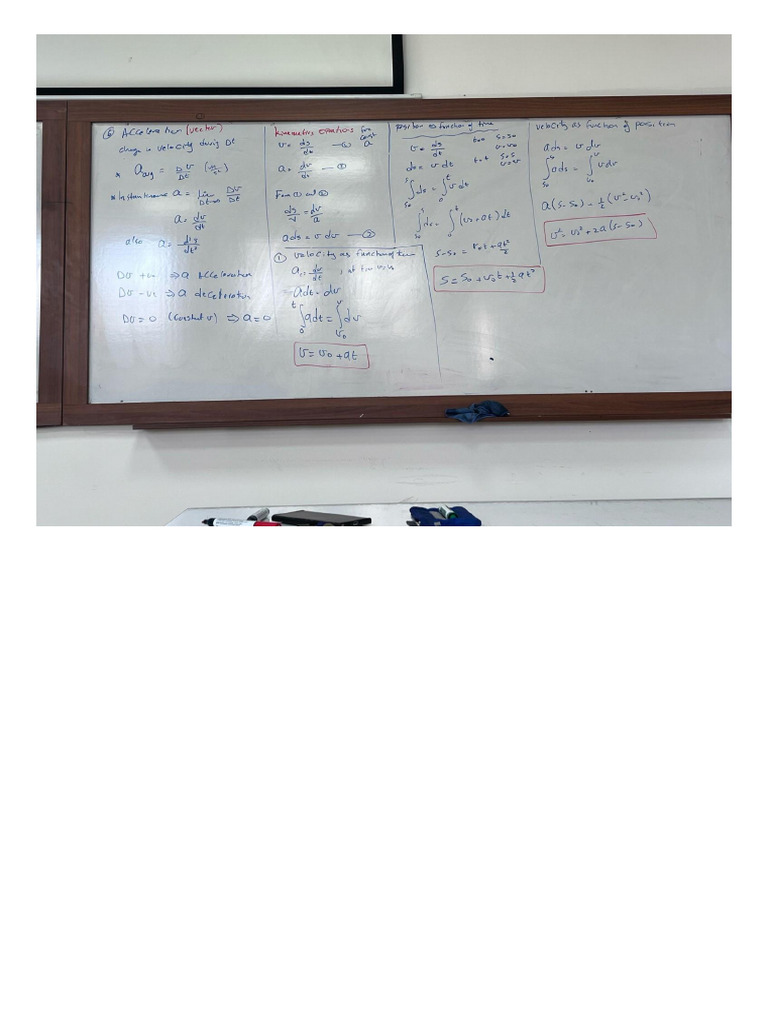 ⑥ Acceleration (vector)
change in velocity during Dt
* a avg = Dv/Dt (m/s²)
* Instantaneous a = lim Dt→0 Dv/Dt
a = dv/dt
also a = d²s/dt²
Dv +ve ⇒ a Acceleration
Dv -ve ⇒ a deceleration
Dv = 0 (constant v) ⇒ a = 0
kinematics equations for const a
a = dv/dt — ②
From ① and ②
ds/v = dv/a
a ds = v dv — ③
① velocity as function of time
a = dv/dt
a dt = dv
∫₀ᵗ a dt = ∫ᵥ₀ᵛ dv
v = v₀ + at
position as function of time
v = ds/dt t=0 s=s₀ v=v₀
ds = v dt t=t s=s v=v
∫ₛ₀ˢ ds = ∫₀ᵗ v dt
∫ₛ₀ˢ ds = ∫₀ᵗ (v₀ + at) dt
s - s₀ = v₀t + at²/2
s = s₀ + v₀t + ½at²
velocity as function of position
a ds = v dv
∫ₛ₀ˢ a ds = ∫ᵥ₀ᵛ v dv
a(s - s₀) = ½(v² - v₀²)
v² = v₀² + 2a(s - s₀)